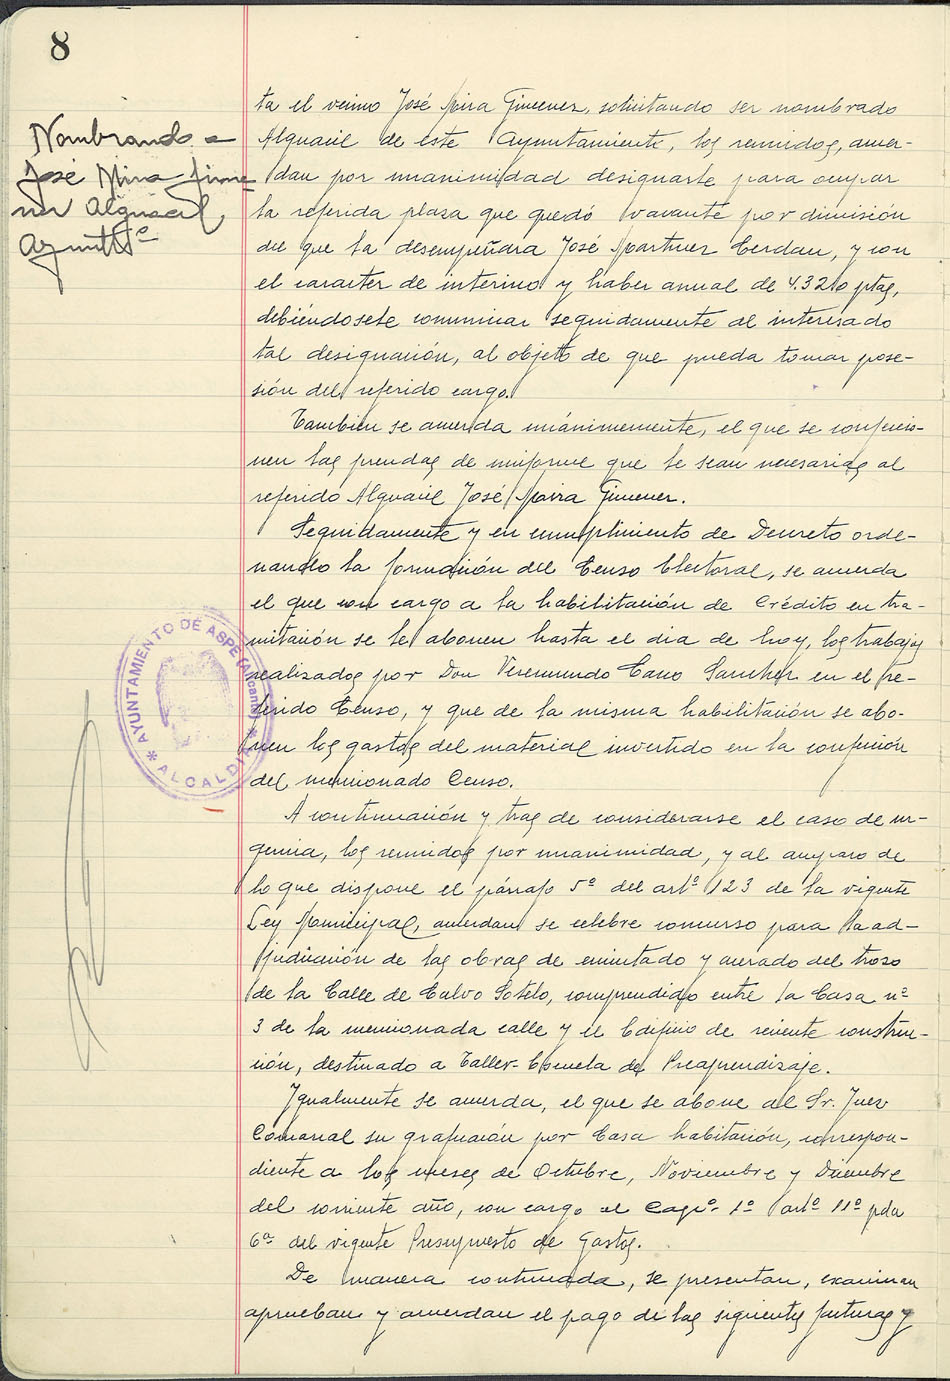 8
Nombrando a
José Mira Jime
nez Alguacil
Ayuntto
ta el vecino José Mira Gimenez, solicitando ser nombrado
Alguacil de este Ayuntamiento, los reunidos, acuer-
dan por unanimidad designarle para ocupar
la referida plaza que quedó vacante por dimisión
de que la desempeñara José Martinez Cerdan, y con
el caracter de interino y haber anual de 4.320 ptas,
debiéndosele comunicar seguidamente al interesado
tal designación, al objeto de que pueda tomar pose-
sión del referido cargo.
Tambien se acuerda unánimemente, el que se confeccio-
nen las prendas de uniforme que le sean necesarias al
referido Alguacil José Mira Gimenez.
Seguidamente y en cumplimiento de Decreto orde-
nando la formación del Censo Electoral, se acuerda
el que con cargo a la habilitación de Crédito en tra-
mitación se le abonen hasta el dia de hoy, los trabajos
realizados por Don Veremundo Cano Sanchez en el re-
ferido Censo, y que de la misma habilitación se abo-
nen los gastos del material invertido en la confección
del mencionado Censo.
AYUNTAMIENTO DE ASPE (Alicante)
* ALCALDIA *
A continuación y tras de considerarse el caso de ur-
gencia, los reunidos por unanimidad, y al amparo de
lo que dispone el párrafo 5º del artº 123 de la vigente
Ley Municipal, acuerdan se celebre concurso para la ad-
judicación de las obras de encintado y acerado del trozo
de la Calle de Calvo Sotelo, comprendido entre la Casa nº
3 de la mencionada calle y el Edificio de reciente construc-
ción, destinado a Taller-Escuela de Preaprendizaje.
Igualmente se acuerda, el que se abone al Sr. Juez
Comarcal su gratificación por Casa habitación, correspon-
diente a los meses de Octubre, Noviembre y Diciembre
del corriente año, con cargo al Capº. 1º artº 11º pda
6ª del vigente Presupuesto de Gastos.
De manera continuada, se presentan, examinan
aprueban y acuerdan el pago de las siguientes facturas y